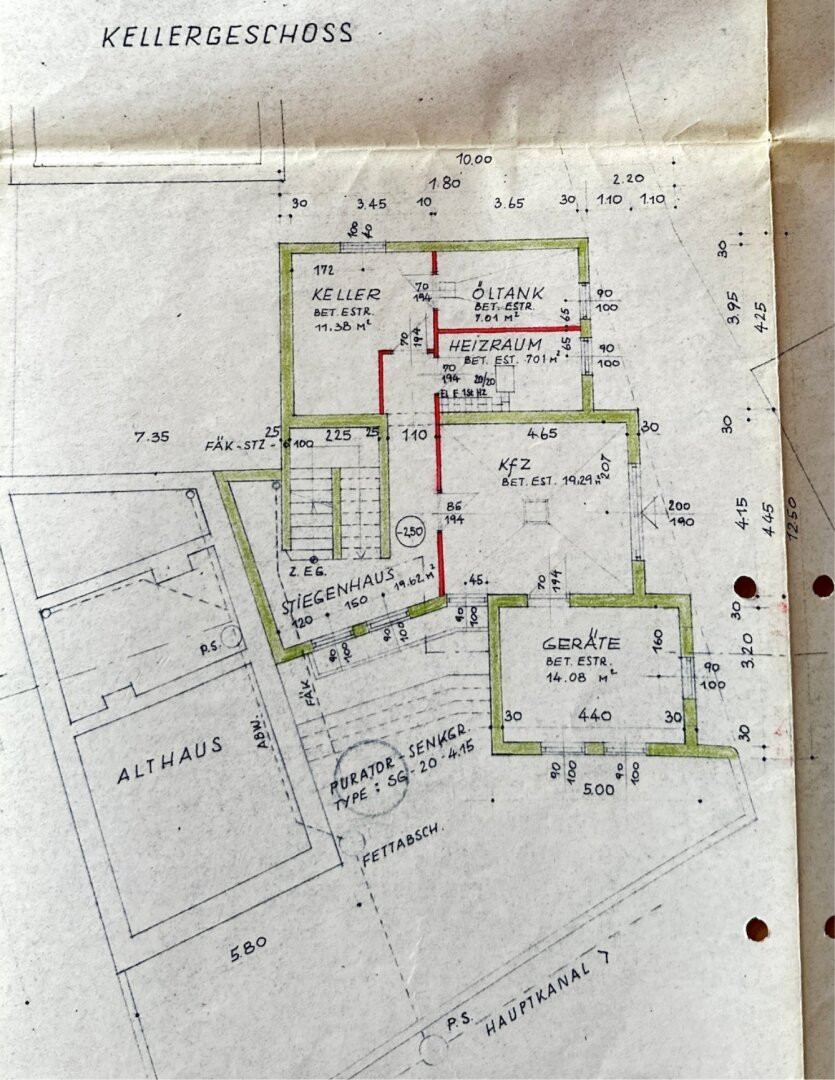 KELLERGESCHOSS
10.00
1.80
2.20
30
3.45
10
3.65
30
1.10
1.10
100
172
KELLER
BET. ESTR.
11.38 M²
70
194
ÖLTANK
BET. ESTR.
7.01 M²
65
90
100
70
194
HEIZRAUM
BET. EST. 7.01 M²
65
90
100
70
194
20/20
30
3.95
4.25
7.35
25
FÄK-STZ-
100
225
25
110
465
30
30
KfZ
BET. EST. 19.29 M²
207
86
194
200
190
4.15
4.45
12.50
-2,50
2. EG.
STIEGENHAUS
19.62 M²
120
150
90
100
90
100
.45.
90
100
70
194
30
3.20
30
GERÄTE
BET. ESTR.
14.08 M²
160
90
100
30
440
30
90
100
90
100
5.00
P.S.
FÄK
ABW.
ALTHAUS
PURATOR-SENKGR.
TYPE: SG-20-4.15
FETTABSCH.
5.80
P.S.
HAUPTKANAL